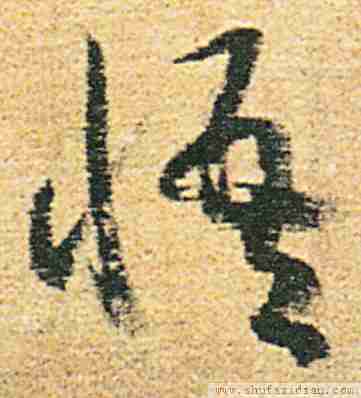 悟
www.shufazidian.com